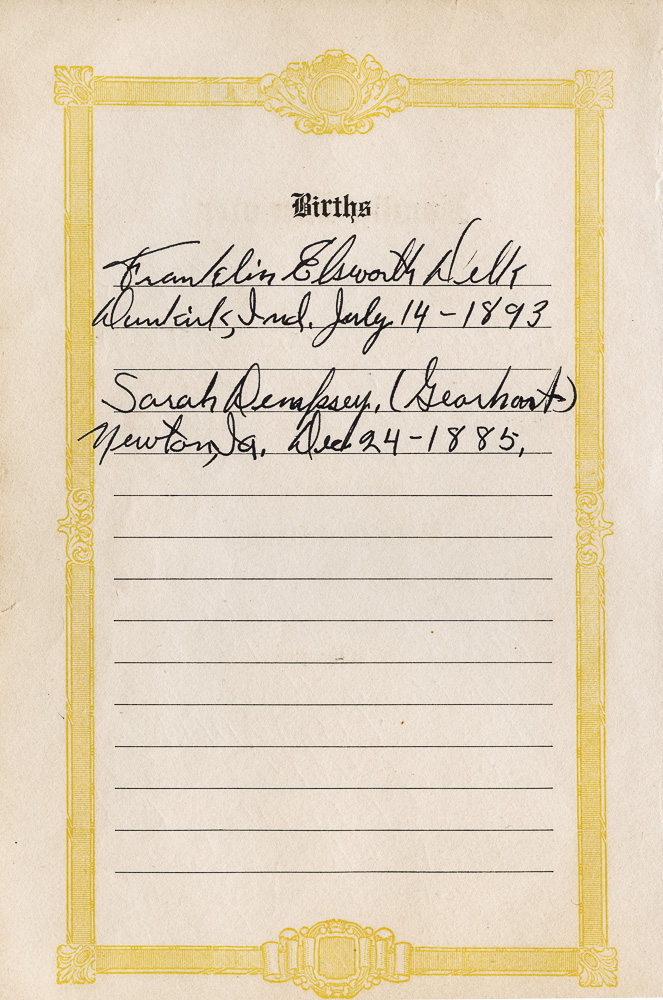 Births
Franklin Elsworth Delk
Dunkirk, Ind. July 14 - 1893
Sarah Dempsey, (Gearhart)
Newton, Ia. Dec 24 - 1885,